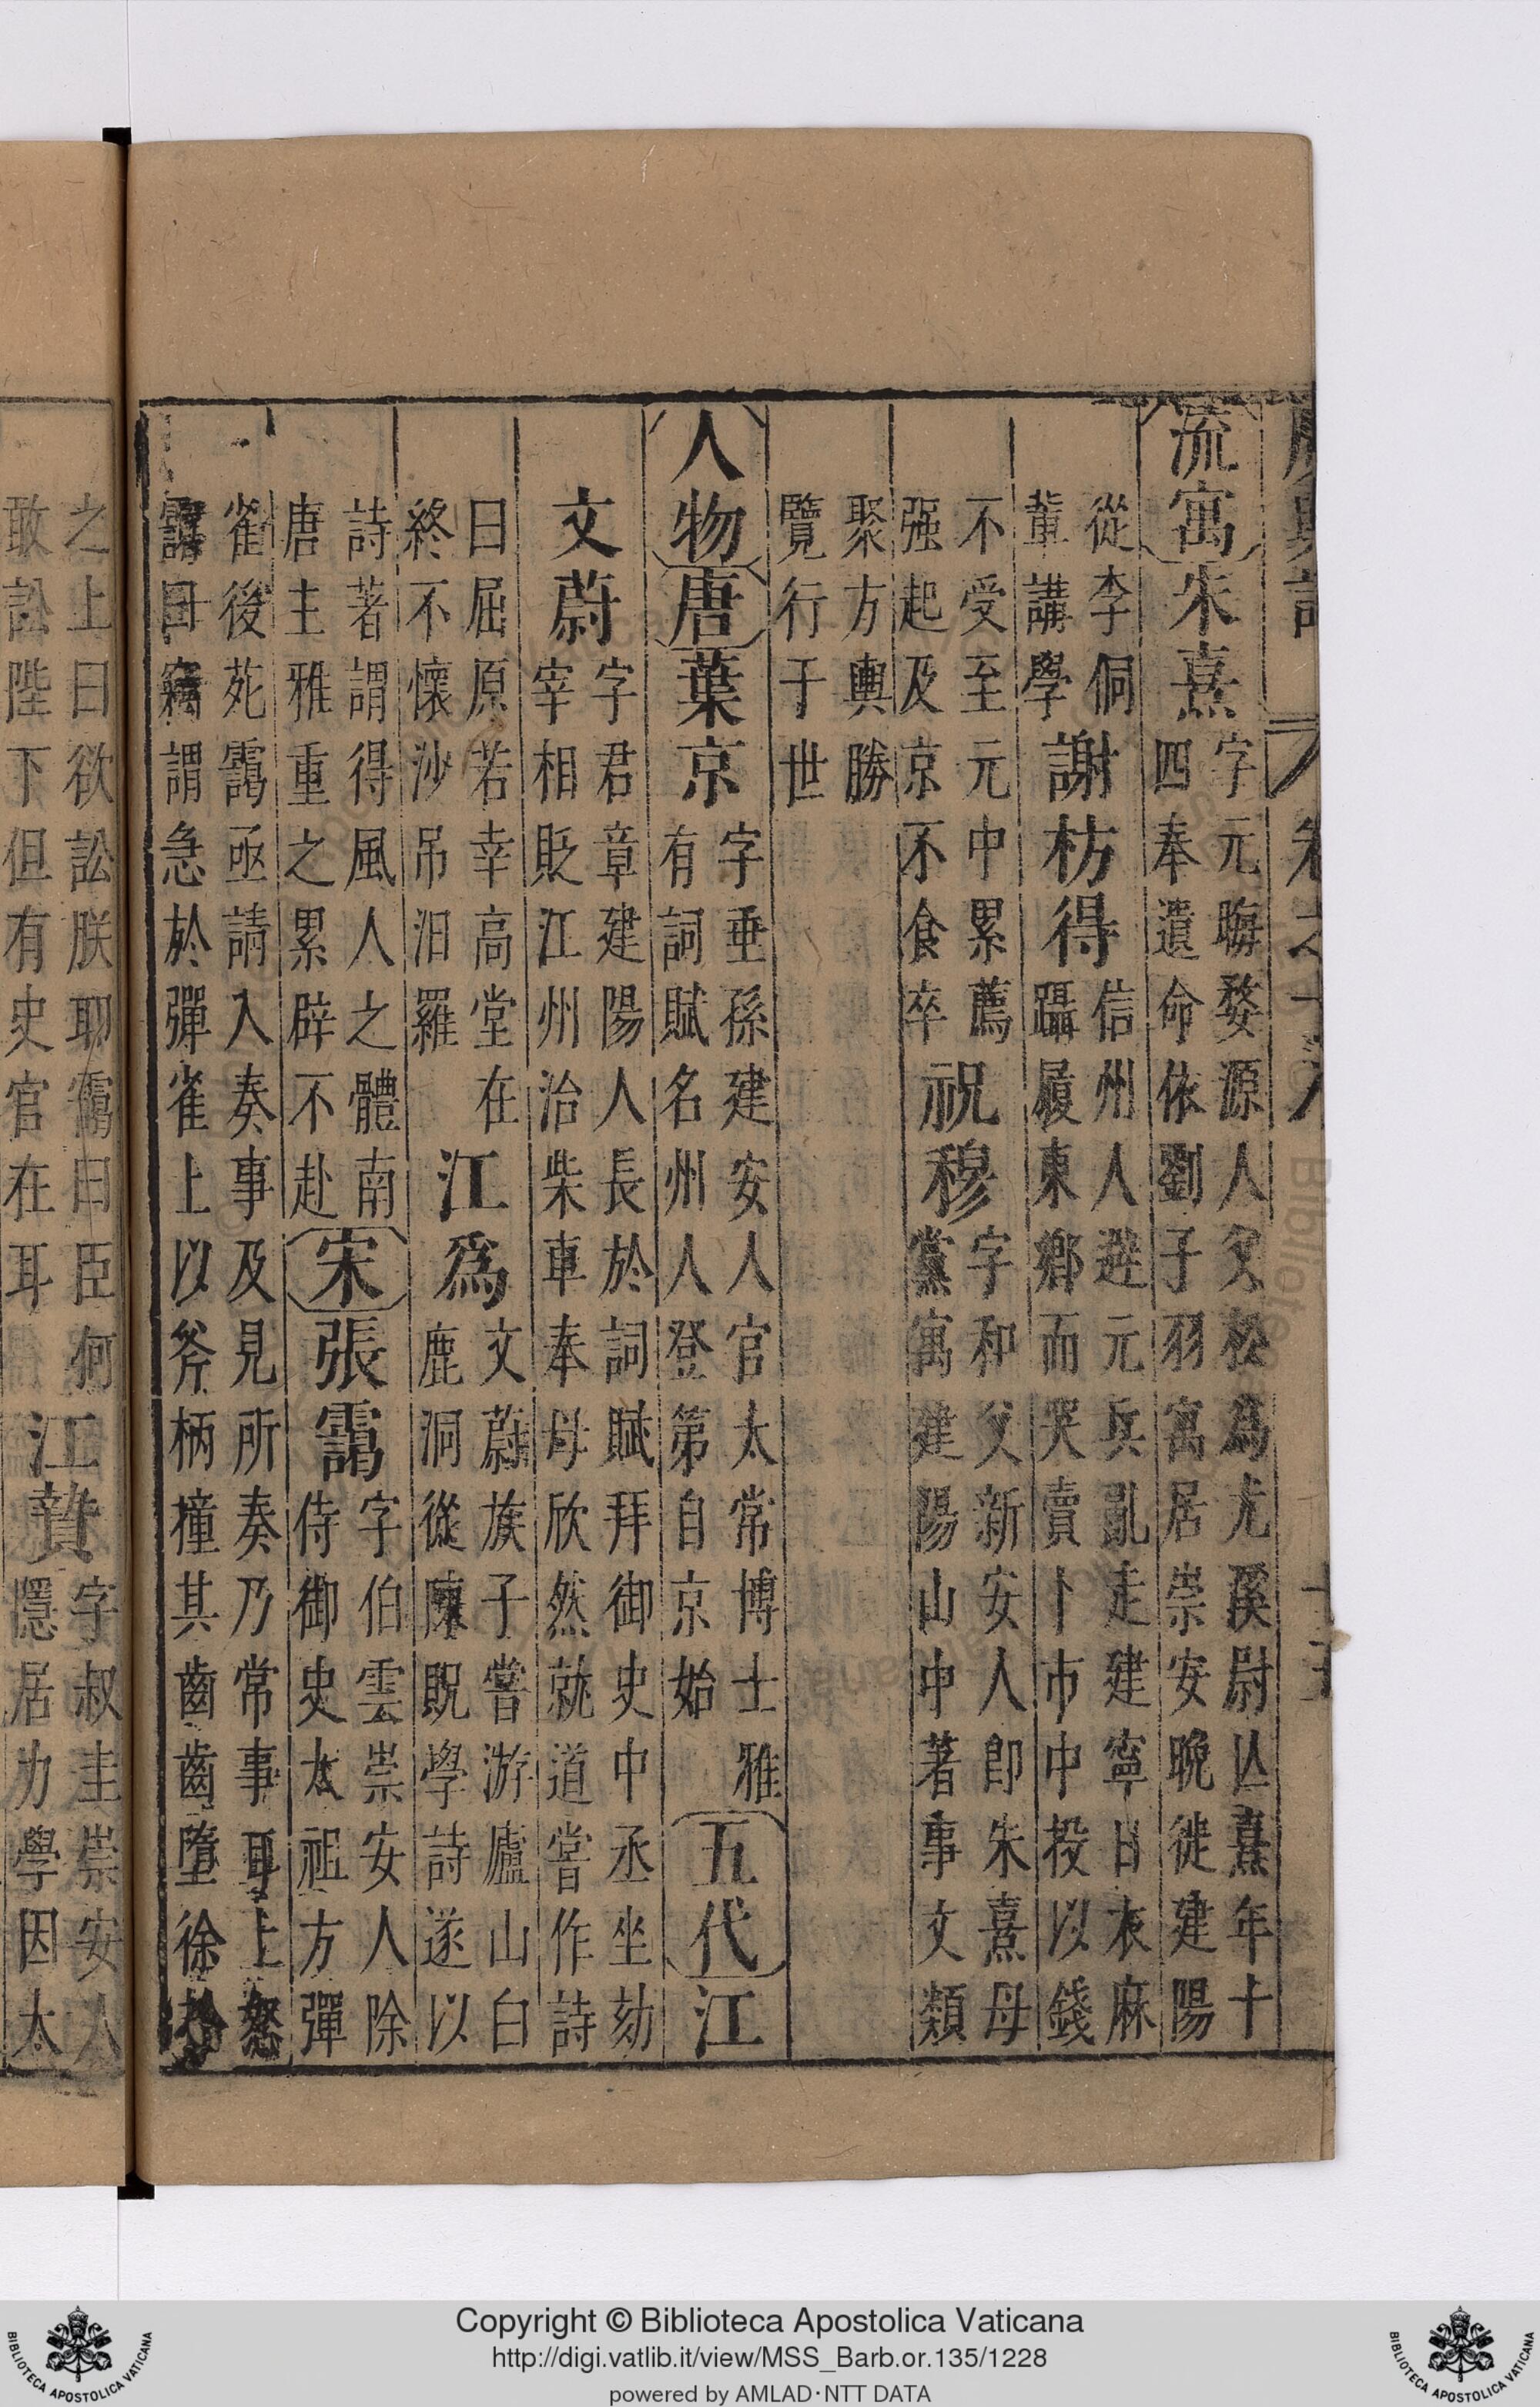 流寓朱熹字元晦婺源人父松爲尤溪尉亾熹年十
四奉遺命依劉子羽寓居崇安晚徙建陽
從李侗
軰講學謝枋得信州人避元兵亂走建寧日衣麻
躡履東鄉而哭賣卜市中投以錢
不受至元中累薦
强起及京不食卒祝穆字和父新安人卽朱熹母
黨寓建陽山中著事文類
聚方輿勝
覽行于世
人物唐葉京字垂孫建安人官太常博士雅
有詞賦名州人登第自京始五代江
文蔚字君章建陽人長於詞賦拜御史中丞坐劾
宰相貶江州治柴車奉母欣然就道嘗作詩
曰屈原若幸高堂在
終不懷沙吊汨羅江爲文蔚族子嘗游廬山白
鹿洞從陳貺學詩遂以
詩著謂得風人之體南
唐主雅重之累辟不赴宋張靄字伯雲崇安人除
侍御史太祖方彈
雀後苑靄亟請入奏事及見所奏乃常事耳上怒
靄曰竊謂急於彈雀上以斧柄撞其齒齒墮徐拾
之上曰欲訟朕耶靄曰臣何
敢訟陛下但有史官在耳江贄字叔圭崇安人
隱居力學因太
Copyright © Biblioteca Apostolica Vaticana
http://digi.vatlib.it/view/MSS_Barb.or.135/1228
powered by AMLAD·NTT DATA
BIBLIOTECA APOSTOLICA VATICANA
BIBLIOTECA APOSTOLICA VATICANA